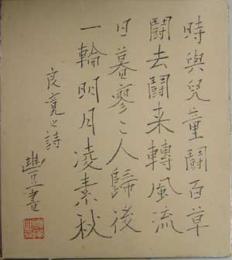 時與兒童闘百草
闘去闘来轉風流
日暮寥々人歸後
一輪明月凌素秋
良寛之詩
豊道書